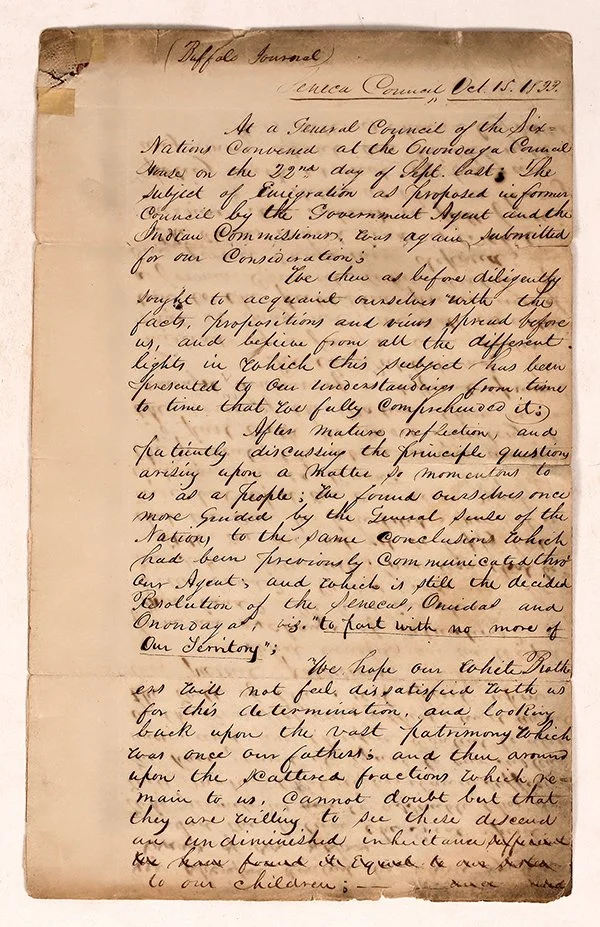 (Buffalo Journal)
Seneca Council, Oct. 15. 1833.
At a General Council of the Six=
Nations Convened at the Onondaga Council
House on the 22nd day of Sept. last; The
subject of Emigration as proposed in former
Council by the Government Agent and the
Indian Commissioner, was again submitted
for our Consideration;
We then as before diligently
sought to acquaint ourselves with the
facts, propositions and views spread before
us, and believe from all the different
lights in which this subject has been
presented to our understandings from time
to time that we fully Comprehended it;
After mature reflection, and
patiently discussing the principle questions
arising upon a matter so momentous to
us as a people; We found ourselves once
more Guided by the General sense of the
Nation, to the same conclusion which
had been previously Communicated thro'
our Agent; and which is still the decided
Resolution of the Senecas, Onidas and
Onondagas, viz. "to part with no more of
Our Territory";
We hope our White Broth
ers will not feel dissatisfied with us
for this determination, and looking
back upon the vast patrimony which
was once our fathers; and then around
upon the scattered fractions which re=
main to us, Cannot doubt but that
they are willing to see these descend
an undiminished inheritance sufficient
We have found it Equal to our
to our children; —